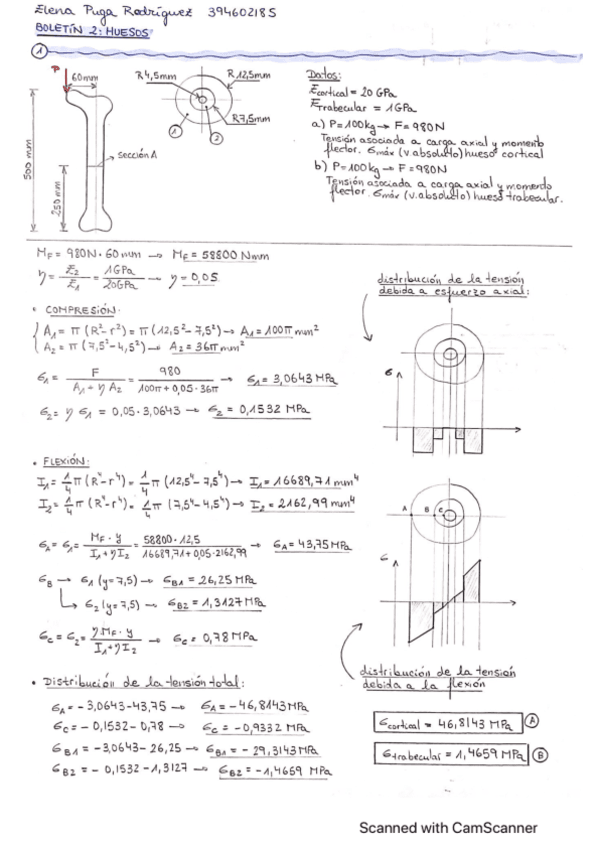 Elena Puga Rodríguez 39460218S
BOLETÍN 2: HUESOS
1
P
60mm
500 mm
250 mm
sección A
R4,5mm
R12,5mm
R7,5mm
1
2
Datos:
Ecortical = 20 GPa
Etrabecular = 1GPa
a) P=100kg → F=980N
Tensión asociada a carga axial y momento
flector. σmáx (v absoluto) hueso cortical
b) P=100kg → F=980N
Tensión asociada a carga axial y momento
flector. σmáx (v.absoluto) hueso trabecular.
MF = 980N · 60mm → MF = 58800 Nmm
η = E2/E1 = 1GPa/20GPa → η = 0,05
• COMPRESIÓN:
A1 = π (R²-r²) = π (12,5²-7,5²) → A1 = 100π mm²
A2 = π (7,5²-4,5²) → A2 = 36π mm²
σ1 = F/(A1 + η A2) = 980/(100π + 0,05·36π) → σ1 = 3,0643 MPa
σ2 = η σ1 = 0,05 · 3,0643 → σ2 = 0,1532 MPa
distribución de la tensión
debida a esfuerzo axial:
σ
• FLEXIÓN:
I1 = 1/4 π (R⁴-r⁴) = 1/4 π (12,5⁴-7,5⁴) → I1 = 16689,71 mm⁴
I2 = 1/4 π (R⁴-r⁴) = 1/4 π (7,5⁴-4,5⁴) → I2 = 2162,99 mm⁴
σA = σ1 = MF · y/(I1+ηI2) = 58800 · 12,5/(16689,71+0,05·2162,99) → σA = 43,75 MPa
σB → σ1 (y=7,5) → σB1 = 26,25 MPa
σ2 (y=7,5) → σB2 = 1,3127 MPa
σC = σ2 = ηMF · y/(I1+ηI2) → σC = 0,78 MPa
A B C
σ
distribución de la tensión
debida a la flexión
• Distribución de la tensión total:
σA = -3,0643-43,75 → σA = -46,8143 MPa
σC = -0,1532-0,78 → σC = -0,9332 MPa
σB1 = -3,0643-26,25 → σB1 = -29,3143 MPa
σB2 = -0,1532-1,3127 → σB2 = -1,4659 MPa
σcortical = 46,8143 MPa A
σtrabecular = 1,4659 MPa B
Scanned with CamScanner